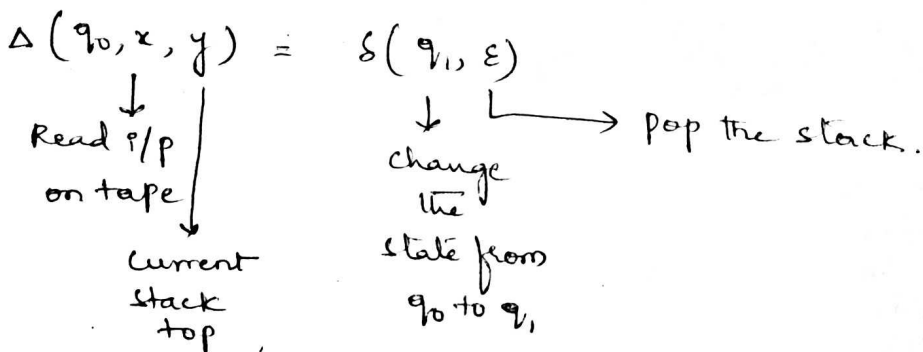 Δ (q₀, x, y) = δ(q₁, ε)
Read i/p
on tape
current
stack
top
change
the
state from
q₀ to q₁
pop the stack.